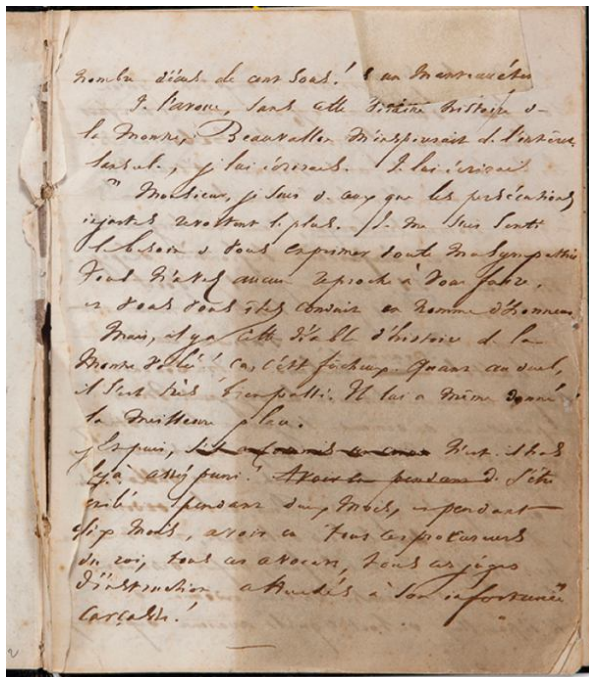 nombre d'écus de cent sous! & un
J. l'avoue, sans cette histoire de
la montre, Beauvallon m'inspirerait de l'intérêt
je lui écrirais. Je lui écrirais
" Monsieur, je suis de ceux que les persécutions
injustes révoltent le plus. Je me suis senti
le besoin de vous exprimer toute ma sympathie
Vous n'avez aucun reproche à vous faire,
et vous vous êtes conduit en homme d'honneur
Mais, il y a cette diable d'histoire de la
montre volée! ça c'est fâcheux. Quant au duel,
il s'est très bien battu. Il lui a même donné
la meilleure place.
Et puis, n'est-il pas
déjà assez puni? de s'être
exilé pendant deux mois, et pendant
dix mois, avoir eu tous ces procureurs
du roi, tous ces avocats, tous ces juges
d'instruction attachés à son infortunée
carcasse!